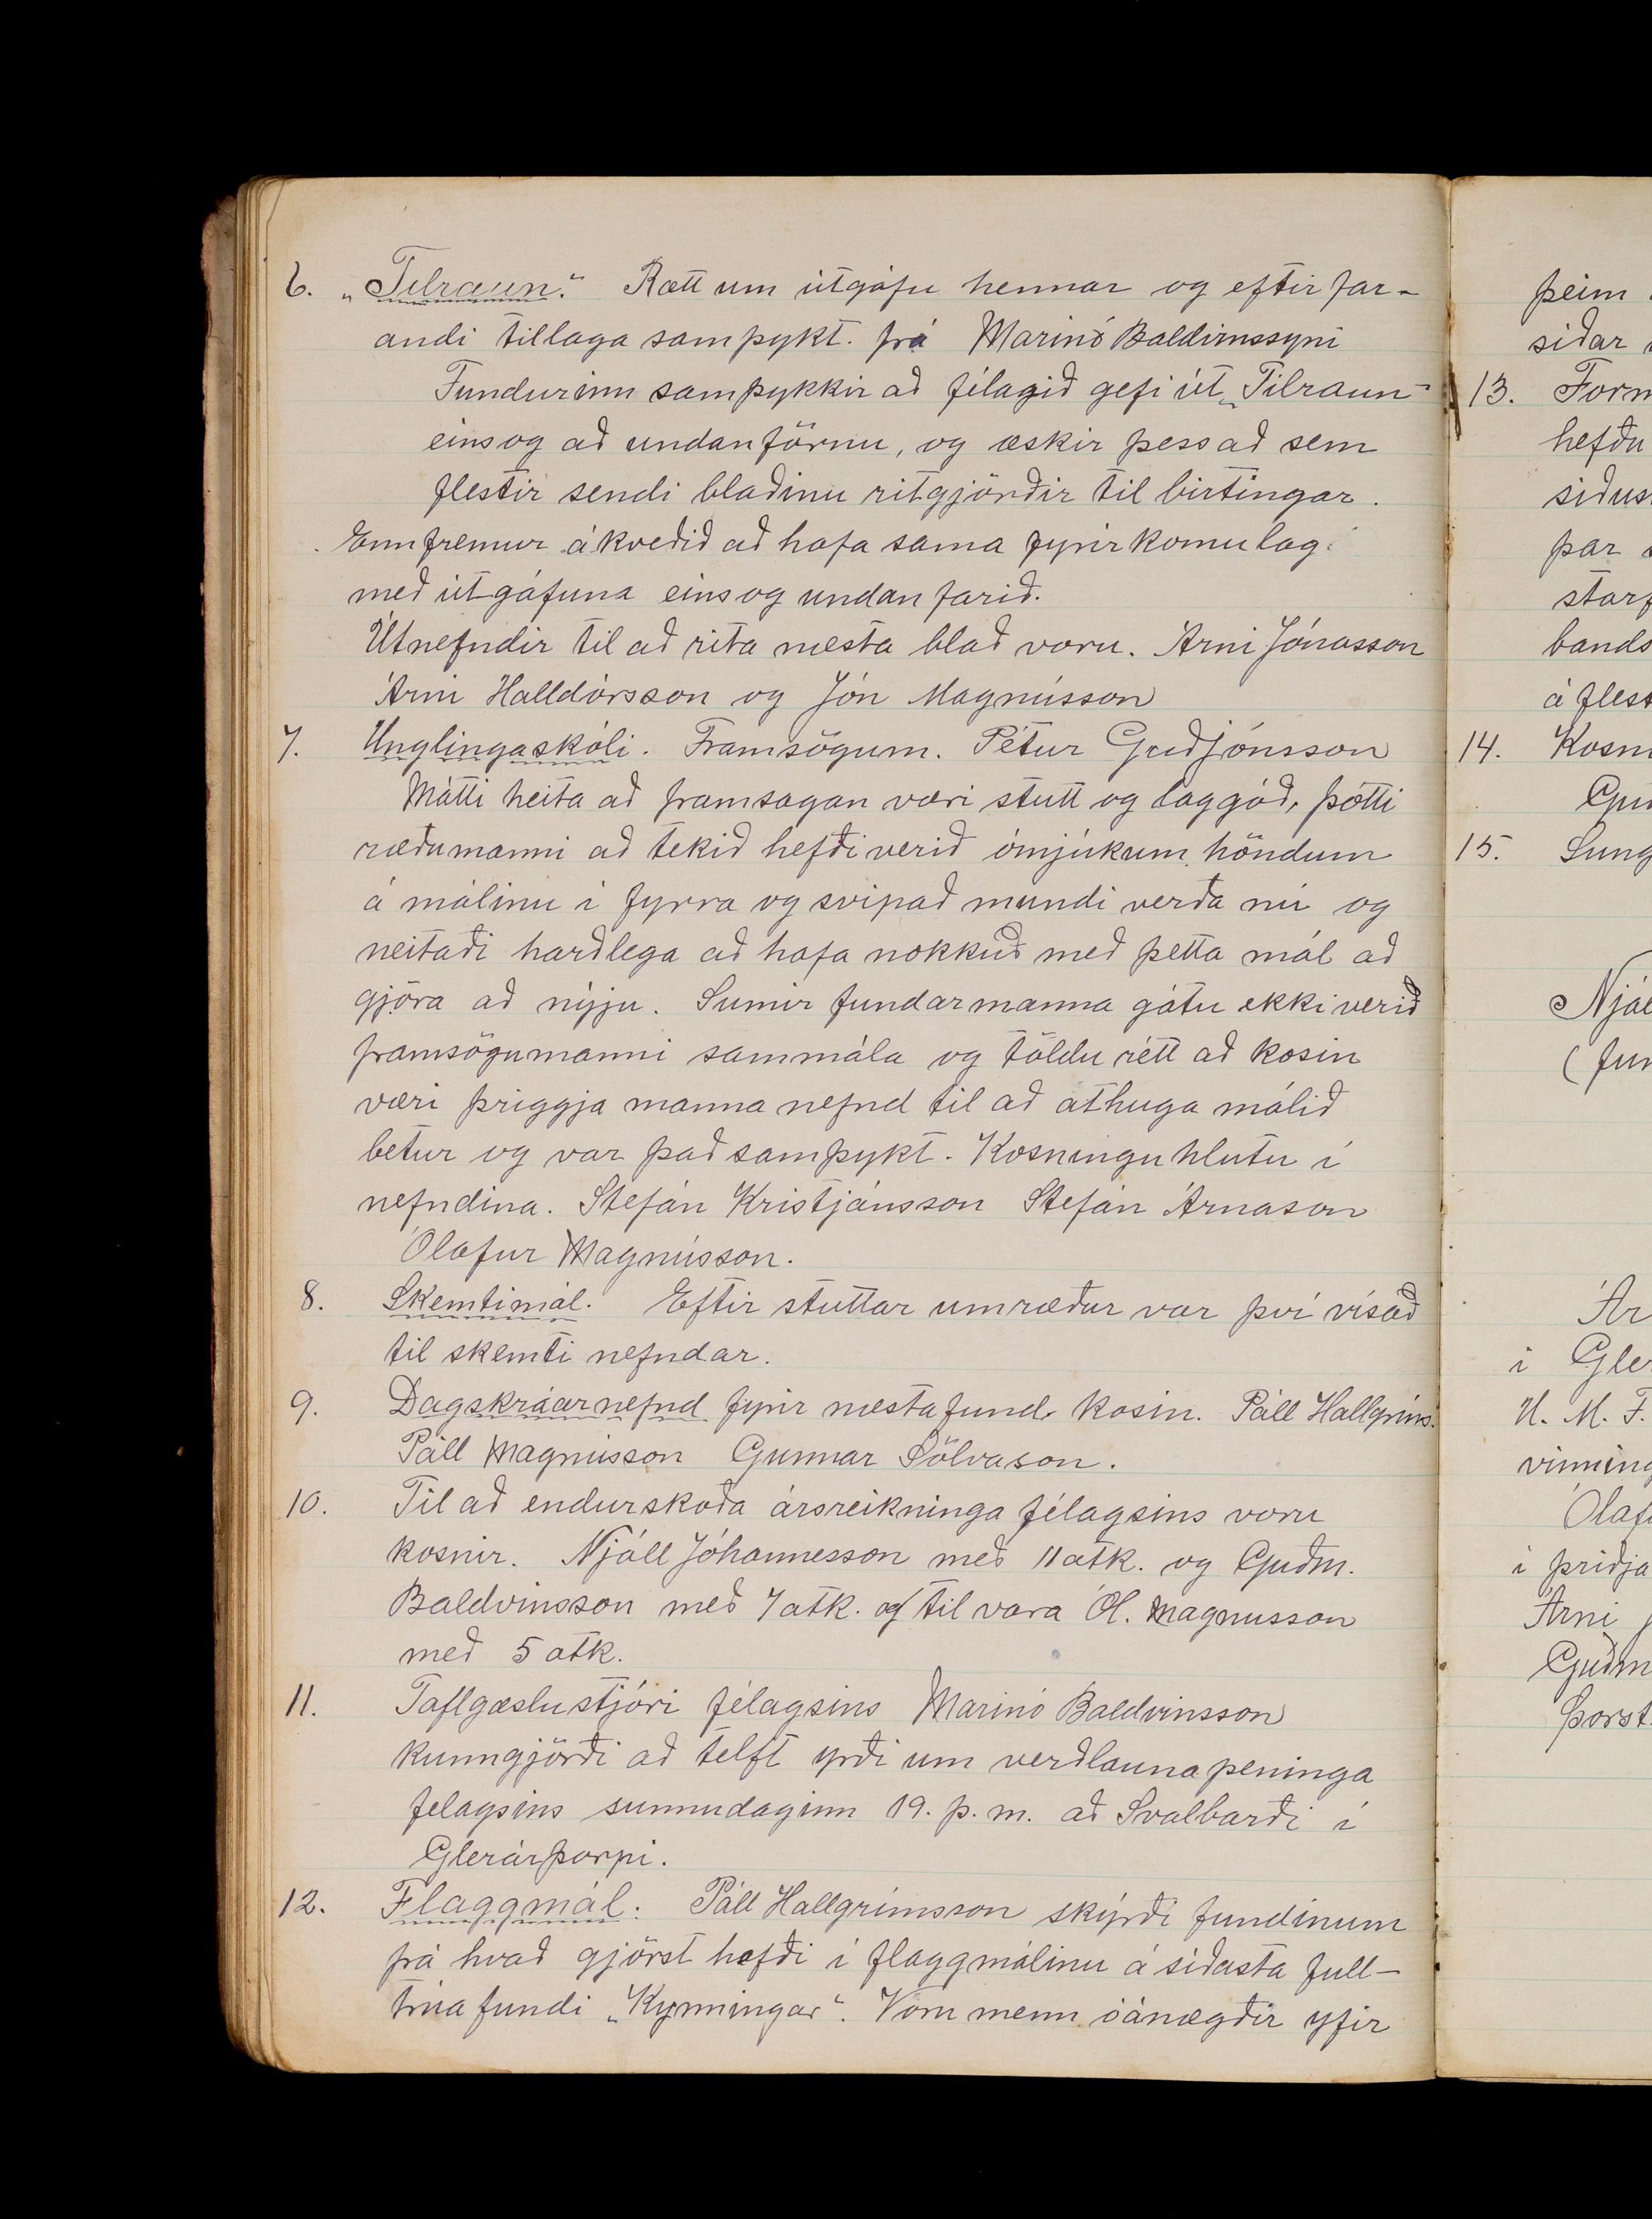 6. „Tilraun“. Rætt um útgáfu hennar og eftir far-
andi tillaga samþykt. frá Marinó Baldvinssyni
Fundurinn samþykkir að félagið gefi út „Tilraun“
eins og að undanförnu, og æskir þess að sem
flestir sendi blaðinu ritgjörðir til birtingar.
Ennfremur ákveðið að hafa sama fyrirkomulag
með útgáfuna eins og undanfarið.
Útnefndir til að rita næsta blað voru. Árni Jónasson
Árni Halldórsson og Jón Magnússon
7. Unglingaskóli. Framsögum. Pétur Guðjónsson
Mátti heita að framsagan væri stutt og laggóð, þótti
ræðumanni að tekið hefði verið ómjúkum höndum
á málinu í fyrra og svipað mundi verða nú og
neitaði harðlega að hafa nokkuð með þetta mál að
gjöra að nýju. Sumir fundarmanna gátu ekki verið
framsögumanni sammála og töldu rétt að kosin
væri þriggja manna nefnd til að athuga málið
betur og var það samþykt. Kosningu hlutu í
nefndina. Stefán Kristjánsson Stefán Árnason
Ólafur Magnússon.
8. Skemtimál. Eftir stuttar umræður var því vísað
til skemti nefndar.
9. Dagskráarnefnd fyrir næsta fund kosin. Páll Hallgríms.
Páll Magnússon Gunnar Sölvason.
10. Til að endurskoða ársreikninga félagsins voru
kosnir. Njáll Jóhannesson með 11 atk. og Guðm.
Baldvinsson með 7 atk. og til vara Ól. Magnusson
með 5 atk.
11. Taflgæslustjóri félagsins Marinó Baldvinsson
kunngjörði að telft yrði um verðlaunapeninga
felagsins sunnudaginn 19. þ. m. að Svalbarði í
Glerárþorpi.
12. Flaggmál. Páll Hallgrímsson skýrði fundinum
frá hvað gjörst hefði í flaggmálinu á síðasta full-
trúa fundi „Kynningar“. Voru menn óánægðir yfir
þeim
síðar
13. Form
hefðu
síðus
þar
starf
bands
á flest
14. Kosn
Guð
15. Sung
Njál
(fun
Ár
í Gler
U. M. F.
vinning
Ólaf
í þriðja
Árni
Guðm
Þorst